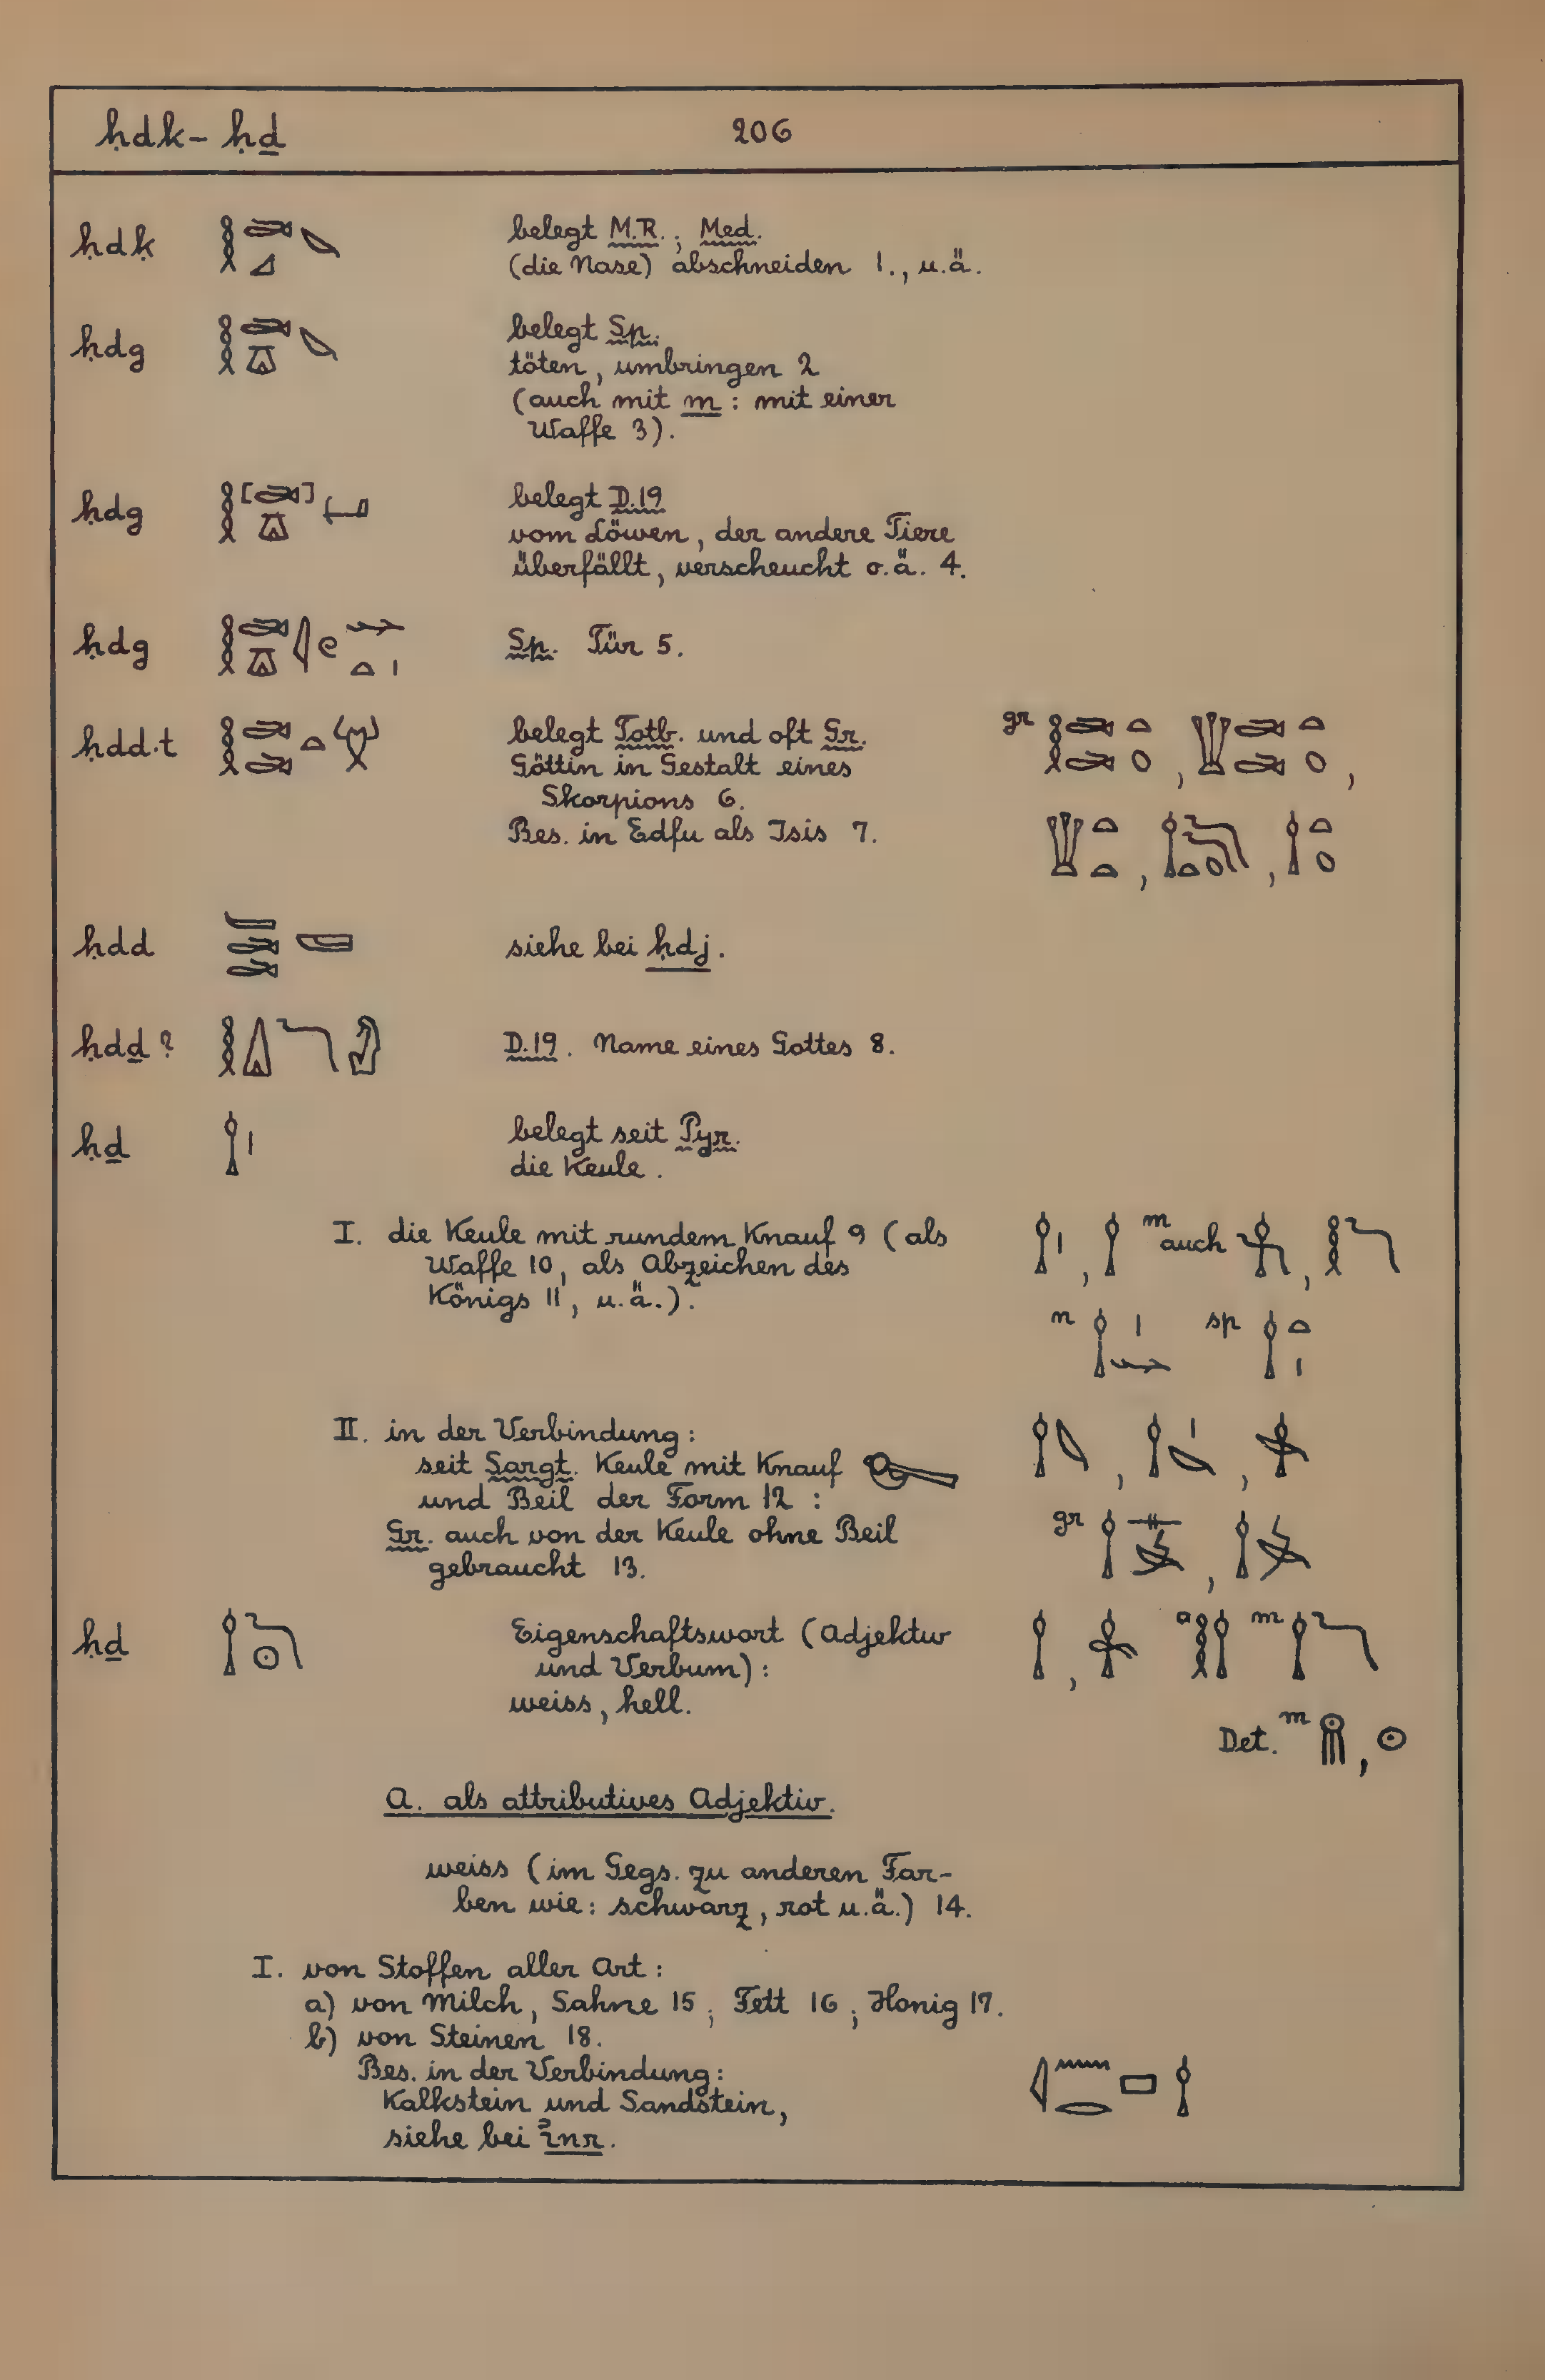 ḥdk – ḥḏ 206
ḥdḳ belegt M.R.; Med.
(die Nase) abschneiden 1., u.ä.
ḥdg belegt Sp.
töten, umbringen 2
(auch mit m : mit einer
Waffe 3).
ḥdg belegt D.19
vom Löwen, der andere Tiere
überfällt, verscheucht o.ä. 4.
ḥdg Sp. Tür 5.
ḥdd.t belegt Totb. und oft Gr. gr
Göttin in Gestalt eines
Skorpions 6.
Bes. in Edfu als Isis 7.
ḥdd siehe bei ḥdj.
ḥdḏ? D.19. Name eines Gottes 8.
ḥḏ belegt seit Pyr.
die Keule.
I. die Keule mit rundem Knauf 9 (als m auch
Waffe 10, als Abzeichen des
Königs 11, u.ä.).
n sp
II. in der Verbindung:
seit Sargt. Keule mit Knauf
und Beil der Form 12 :
Gr. auch von der Keule ohne Beil gr
gebraucht 13.
ḥḏ Eigenschaftswort (Adjektiv a m
und Verbum):
weiss, hell.
Det. m
A. als attributives Adjektiv.
weiss (im Gegs. zu anderen Far-
ben wie: schwarz, rot u.ä.) 14.
I. von Stoffen aller Art:
a) von Milch, Sahne 15; Fett 16; Honig 17.
b) von Steinen 18.
Bes. in der Verbindung:
Kalkstein und Sandstein,
siehe bei ỉnr.